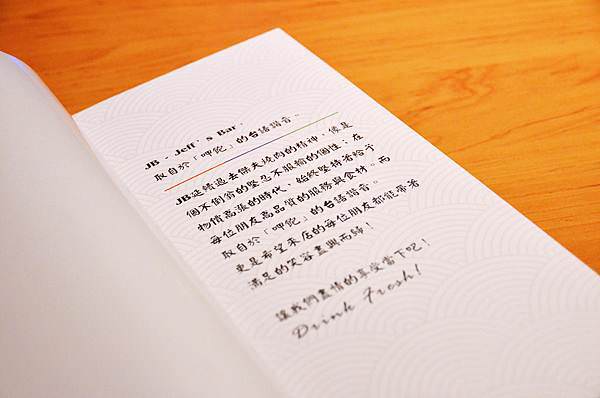 JB - Jeff's Bar,
取自於「呷飽」的台語諧音。
JB延續過去傑夫燒肉的精神,像是
個不倒翁的堅忍不服輸的個性;在
物價高漲的時代,始終堅持著給予
每位朋友高品質的服務與食材。而
取自於「呷飽」的台語諧音。
更是希望來店的每位朋友都能帶著
滿足的笑容盡興而歸!
讓我們盡情的享受當下吧!
Drink Fresh!